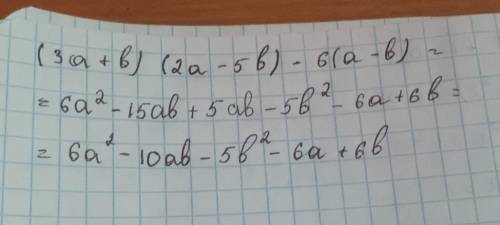 (3a + b) (2a - 5b) - 6(a - b) =
= 6a² - 15ab + 5ab - 5b² - 6a + 6b =
= 6a² - 10ab - 5b² - 6a + 6b